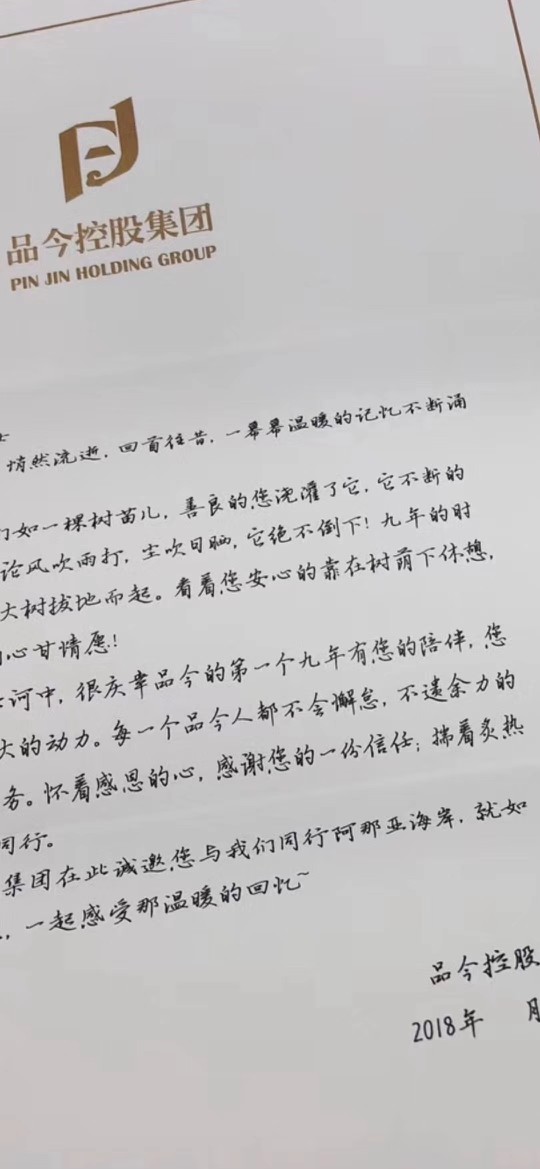 品今控股集团
PIN JIN HOLDING GROUP
悄然流逝，回首往昔，一幕幕温暖的记忆不断涌
们如一棵树苗儿，善良的您浇灌了它，它不断的
论风吹雨打，尘吹日晒，它绝不倒下！九年的时
大树拔地而起。看着您安心的靠在树荫下休憩，
心甘情愿！
河中，很庆幸品今的第一个九年有您的陪伴，您
大的动力。每一个品今人都不会懈怠，不遗余力的
务。怀着感恩的心，感谢您的一份信任；揣着炙热
同行。
集团在此诚邀您与我们同行阿那亚海岸，就如
，一起感受那温暖的回忆~
品今控股
2018年 月